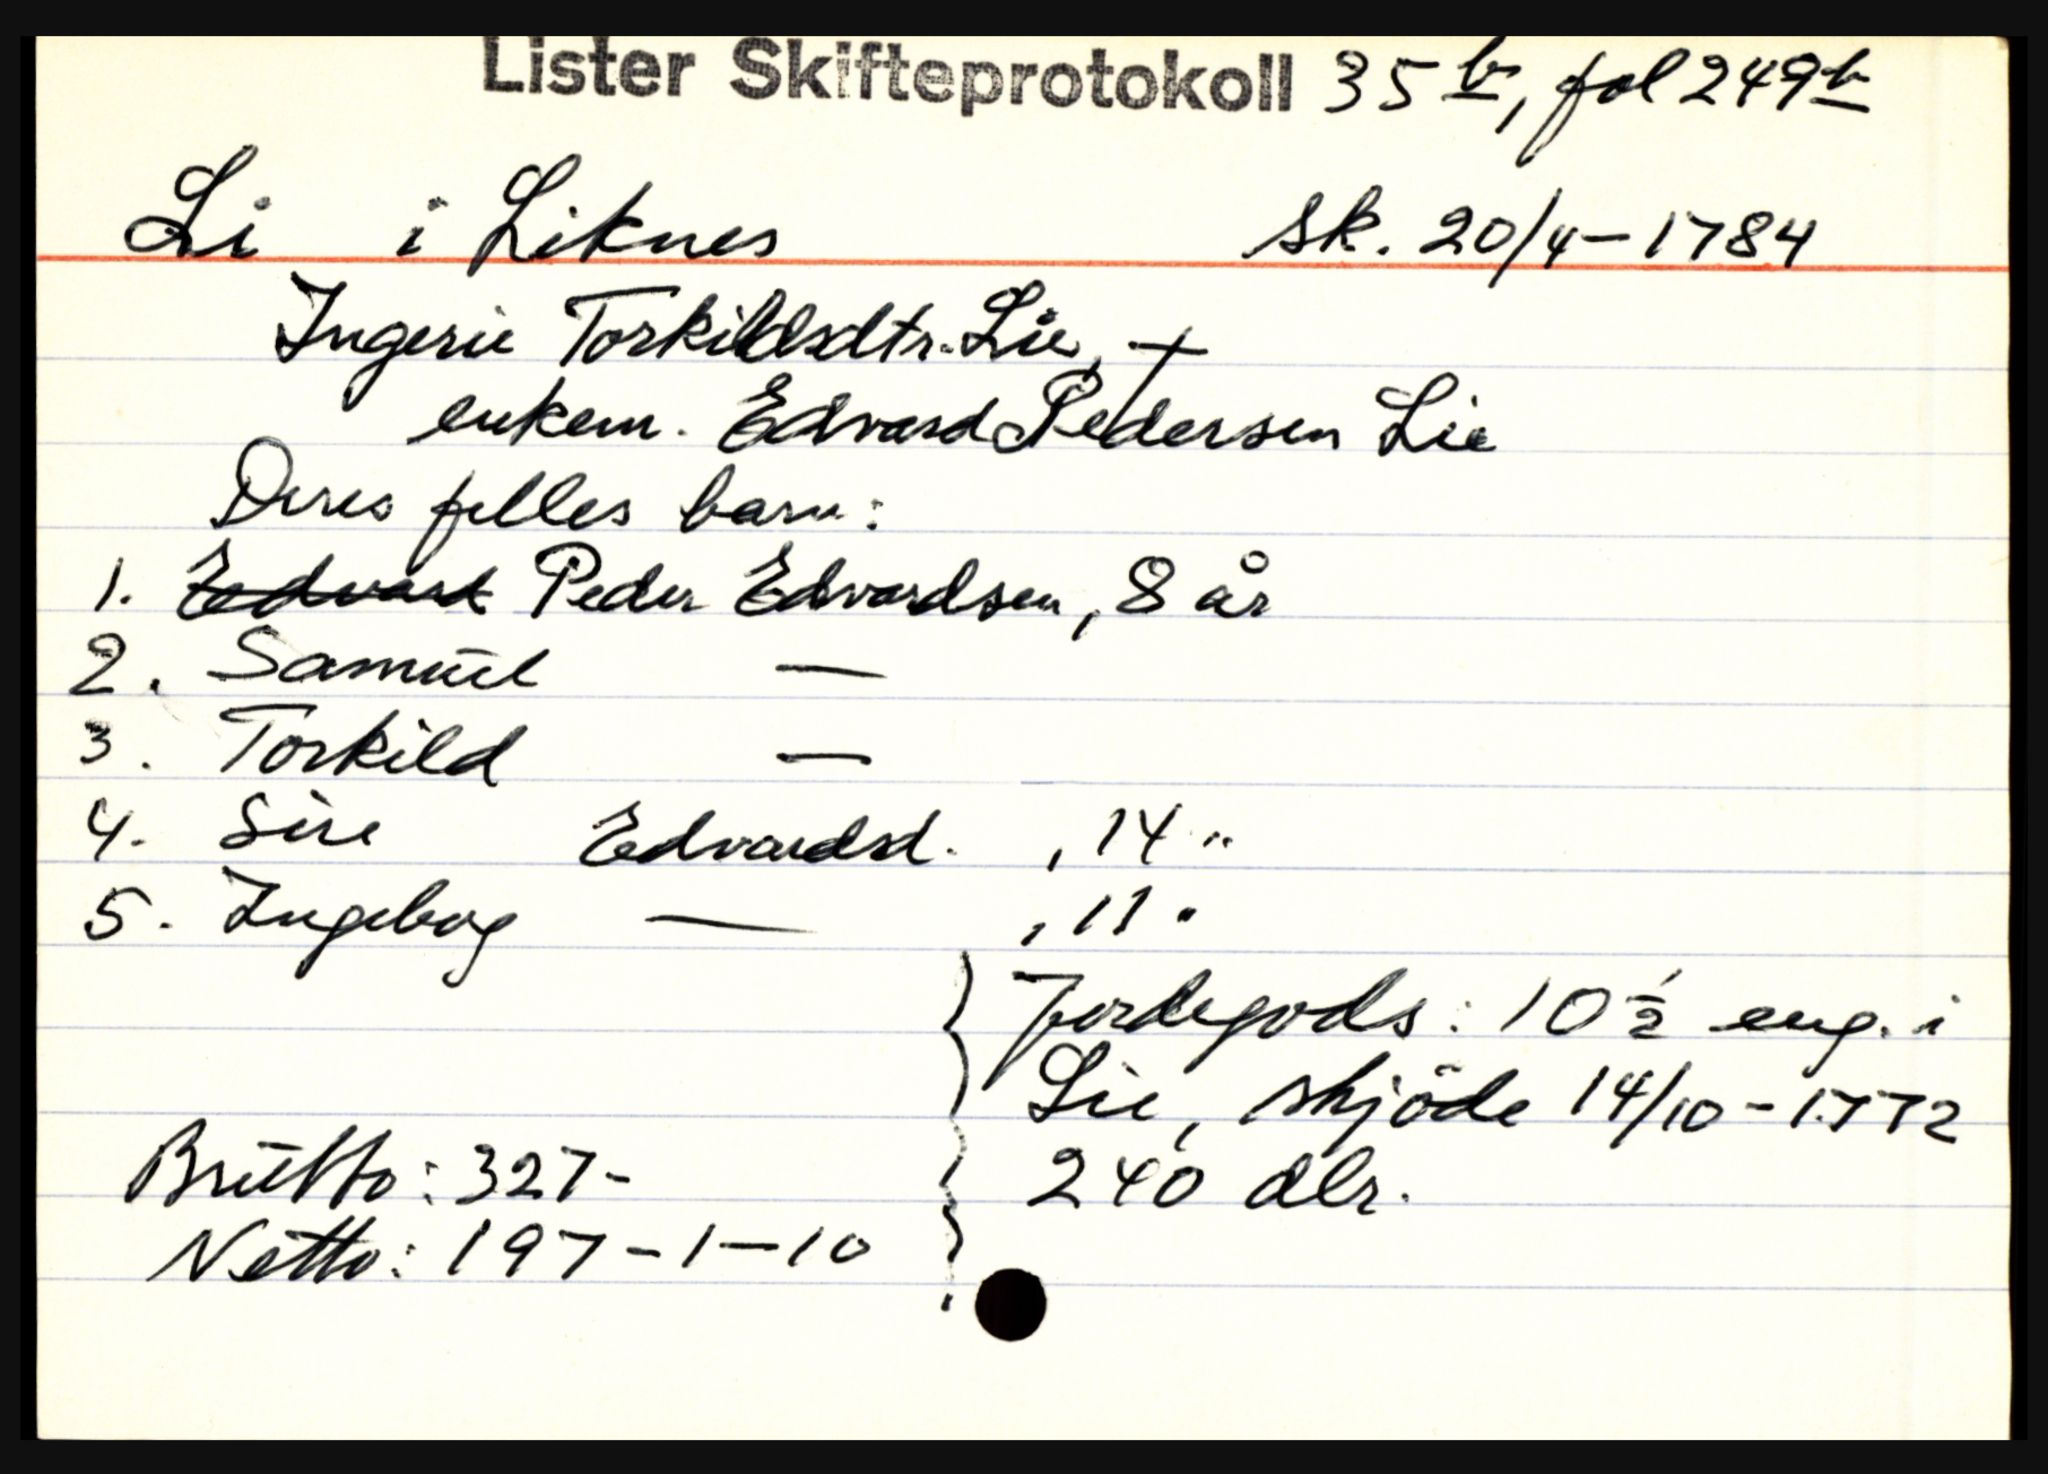 Lister Skifteprotokoll 35 b, fol 249 b
Li i Liknes sk. 20/4-1784
Ingerie Torkildsdtr. Lie, +
enkem. Edvard Pedersen Lie
Deres felles barn:
1. Edvard Peder Edvardsen, 8 år
2. Samuel —
3. Torkild —
4. Sire Edvardsd. , 14 "
5. Ingebog — , 11 "
Jordegods: 10 1/2 eng. i
Lie, skjöde 14/10-1772
240 dlr.
Brutto: 327-
Netto: 197-1-10